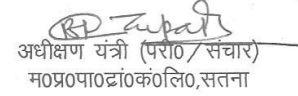 अधीक्षण यंत्री (परी0/संचार)
म0प्र0पा0ट्रां0कं0लि0,सतना